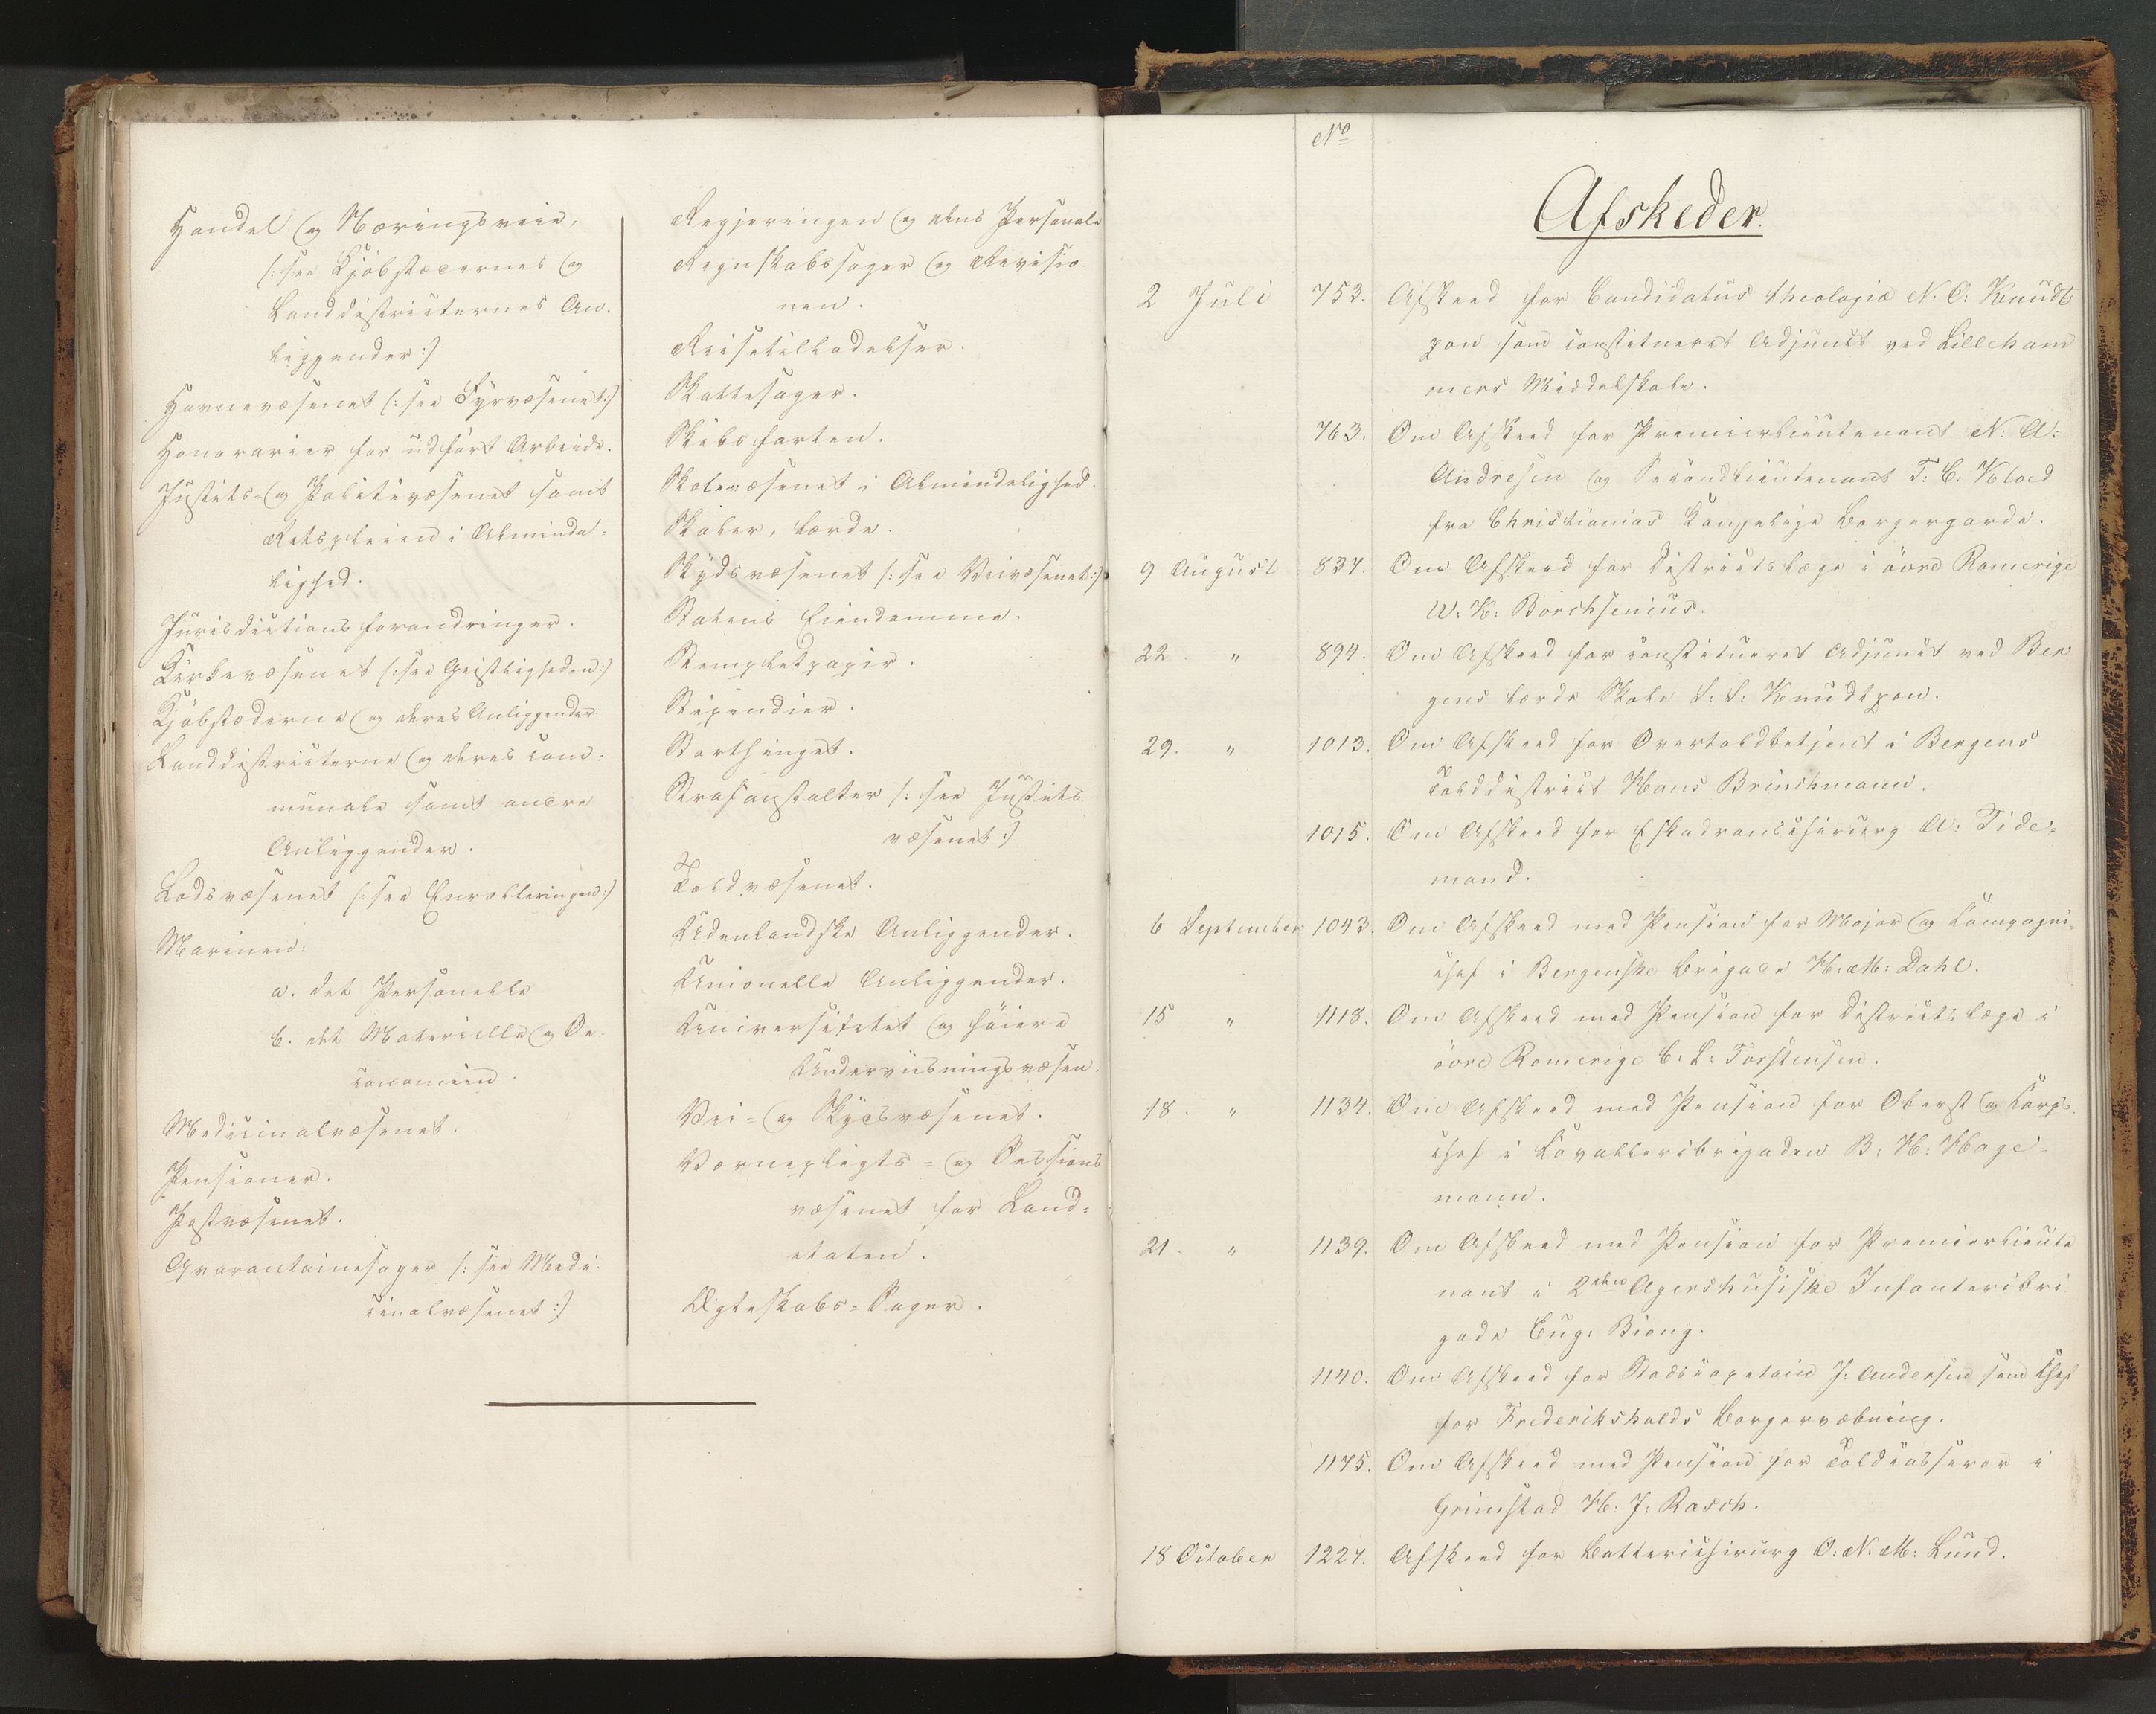 Handel og Næringsveie,
(: see Kjøbstædernes og
Landdistricternes An-
liggender :)
Havnevæsenet (: see Fyrvæsenet :)
Honorarier for udført Arbeide.
Justits- og Politivæsenet samt
Retspleien i Alminde-
lighed.
Jurisdictionsforandringer.
Kirkevæsenet (: see Geistligheden :)
Kjøbstæderne og deres Anliggender
Landdistricterne og deres com-
munale samt andre
Anliggender.
Lodsvæsenet (: see Enrolleringen :)
Marinen:
a. det Personelle
b. det Materielle og Oe-
conomien.
Medicinalvæsenet.
Pensioner.
Postvæsenet.
Qvarantainesager (: see Medi-
cinalvæsenet :)
Regjeringen og dens Personale
Regnskabssager og Revisio
nen.
Reisetilladelser.
Skattesager.
Skibsfarten.
Skolevæsenet i Almindelighed.
Skoler, lærde.
Skydsvæsenet (: see Veivæsenet :)
Statens Eiendomme.
Stempletpapir.
Stipendier.
Storthinget.
Strafanstalter (: see Justits
væsenet :)
Toldvæsenet.
Udenlandske Anliggender.
Unionelle Anliggender.
Universitetet og høiere
Underviisningsvæsen.
Vei- og Skydsvæsenet.
Værnepligts- og Sessions
væsenet for Land-
etaten.
Ægteskabs-Sager.
No
Afskeder.
2 Juli 753. Afskeed for Candidatus theologiæ N: C: Knudt
zon som constitueret Adjunct ved Lilleham
mers Middelskole.
763. Om Afskeed for Premierlieutenant N: A:
Andresen og Secondlieutenant T: C: Kloed
fra Christianias Kongelige Borgergarde.
9 August 837. Om Afskeed for Districtslæge i övre Romerige
W: K: Borchsenius.
22 " 894. Om Afskeed for constitueret Adjunct ved Ber
gens lærde Skole S: S: Knudtzon.
29. " 1013. Om Afskeed for Overtoldbetjent i Bergens
Tolddistrict Hans Brinchmann.
1015. Om Afskeed for Eskadronschirurg A: Tide-
mand.
6 September 1043. Om Afskeed med Pension for Major og Compagni-
chef i Bergenske Brigade H: M: Dahl.
15 " 1118. Om Afskeed med Pension for Districtslæge i
övre Romerige C: L: Torstensen.
18. " 1134. Om Afskeed med Pension for Oberst og Corps-
chef i Cavalleribrigaden B: H: Hage-
mann.
21. " 1139. Om Afskeed med Pension for Premierlieute
nant i 2den Agershusiske Infanteribri-
gade Eug: Biong.
1140. Om Afskeed for Stadscapetain J: Andersen som Chef
for Frederikshalds Borgervæbning.
1175. Om Afskeed med Pension for Toldcasserer i
Grimstad H: J: Rasch.
18 October 1227. Afskeed for Battericchirurg O: N: M: Lund.